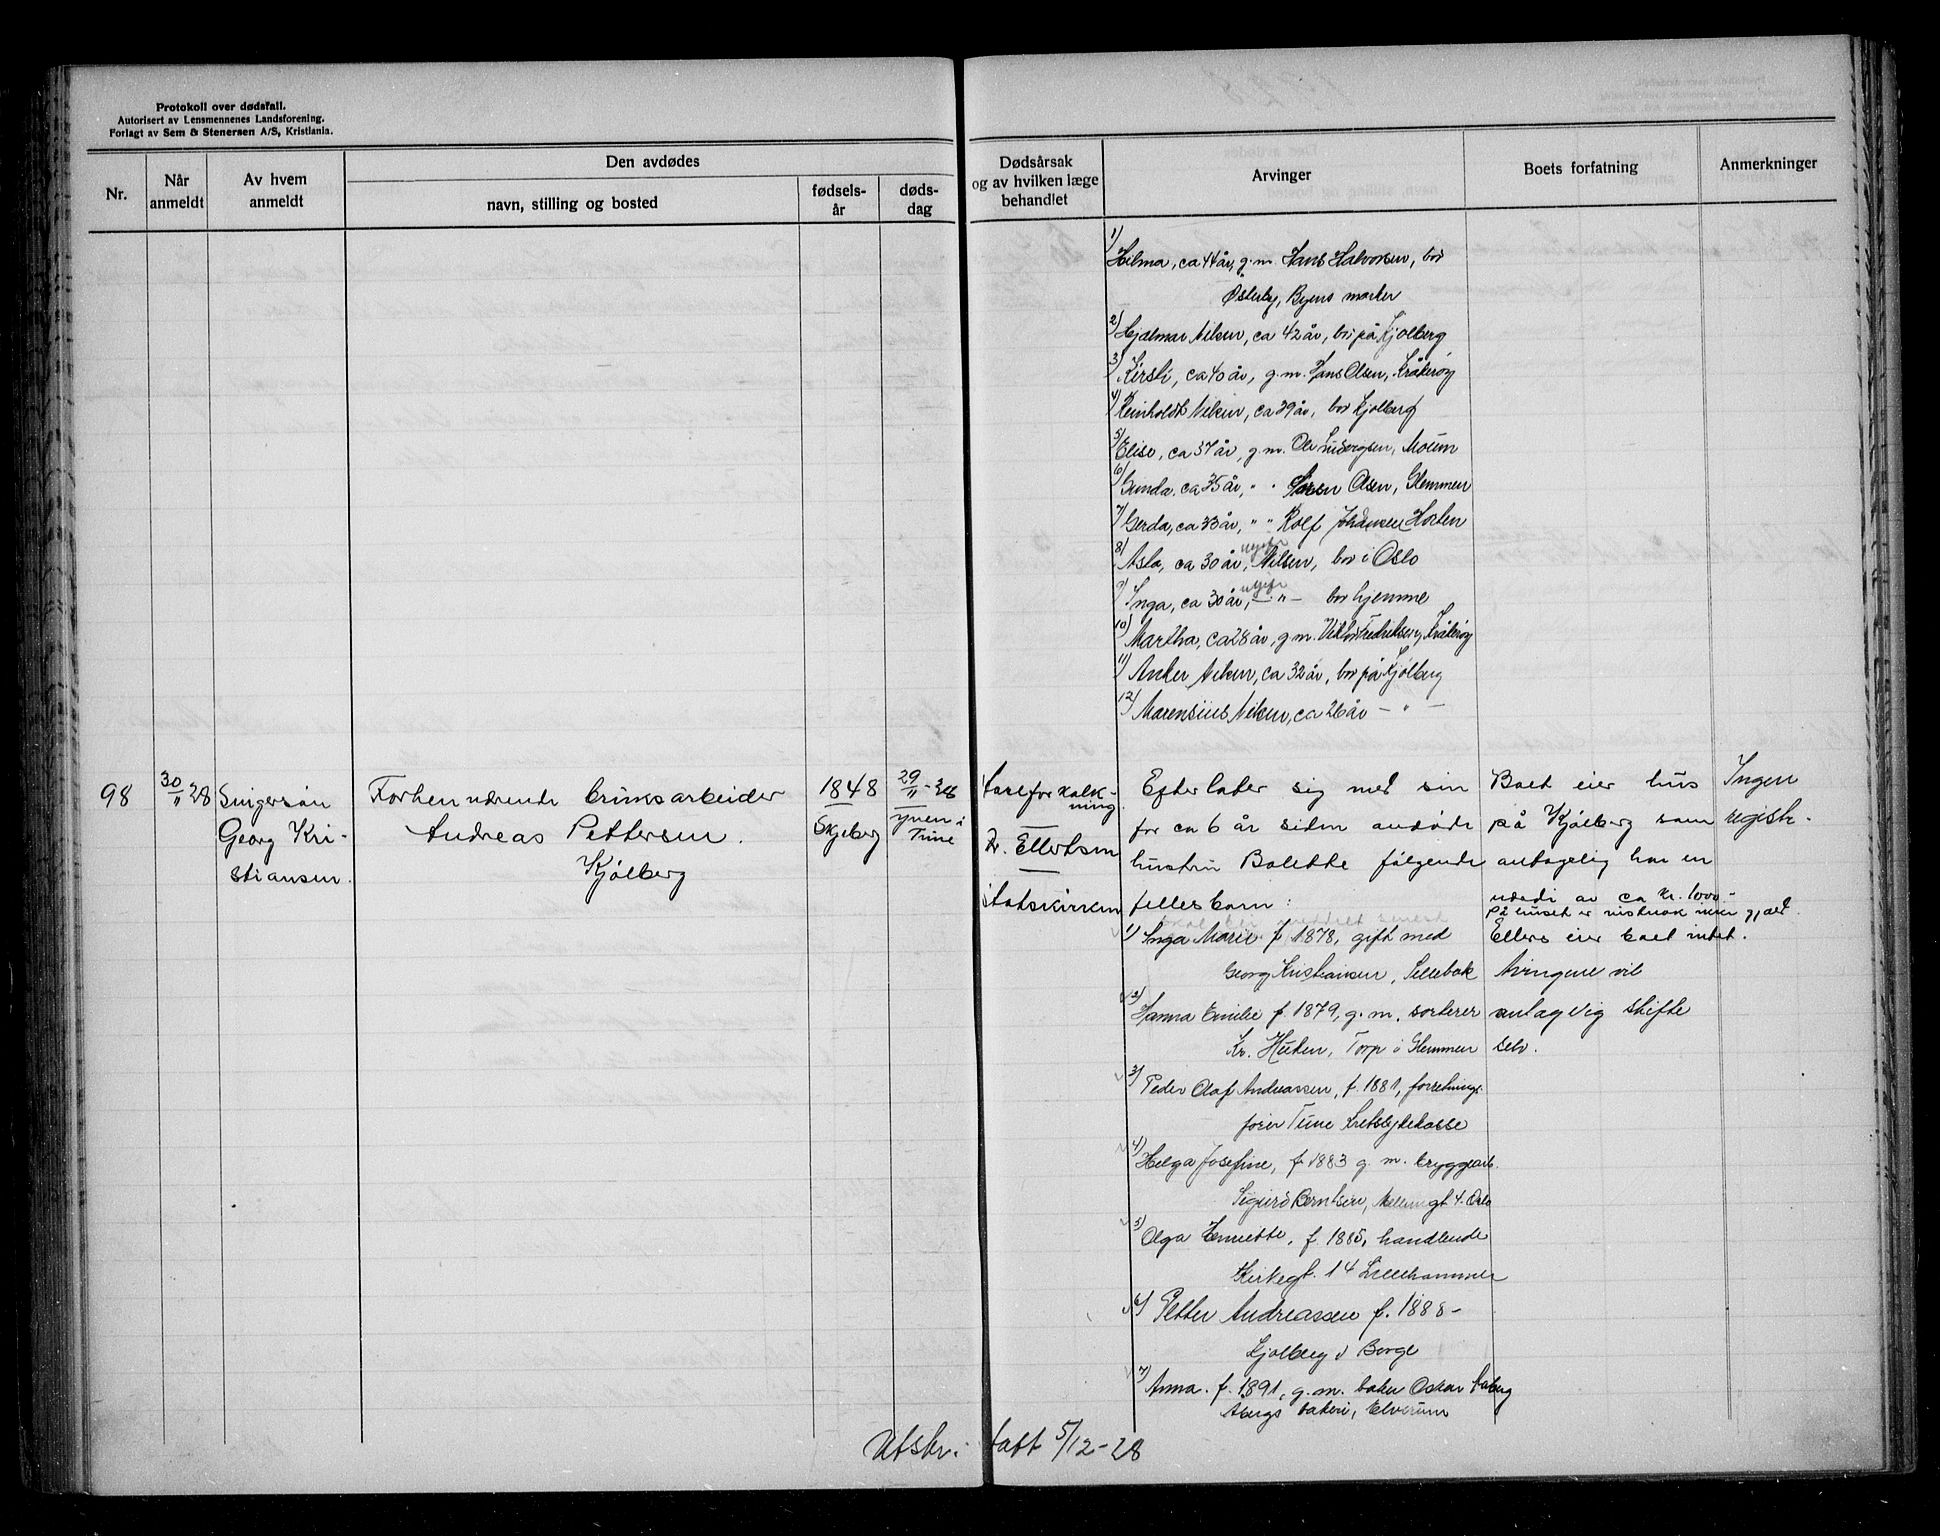 Protokoll over dødsfall.
Autorisert av Lensmennenes Landsforening.
Forlagt av Sem & Stenersen A/S, Kristiania.
Nr.
Når anmeldt
Av hvem anmeldt
Den avdødes
navn, stilling og bosted
fødsels-år
døds-dag
Dødsårsak og av hvilken læge behandlet
Arvinger
Boets forfatning
Anmerkninger
1) Hilma, ca 44 år, g.m. Hans Halvorsen, bor
Østerby, Byens marker
2) Hjalmar Nilsen, ca 42 år, bor på Kjølberg
3) Kirsti, ca 40 år, g.m. Hans Olsen, Kråkerøy
4) Reinholdt Nilsen, ca 39 år, bor Kjølberg
5) Elise, ca 37 år, g.m. Ole Ludvigsen, Moum
6) Gunda, ca 35 år, " " Olsen, Glemmen
7) Gerda, ca 33 år, " " Rolf Johansen Horten
8) Asta, ca 30 år, ugift Nilsen, bor i Oslo
9) Inga, ca 30 år, ugift — " — bor hjemme
10) Martha, ca 28 år, g.m. Viktor Fredriksen, Kråkerøy
11) Anker Nilsen, ca 32 år, bor på Kjølberg
12) Marensius Nilsen, ca 26 år — " —
98
30/11 28
Svigersøn
Georg Kri-
stiansen.
Forhenværende bruksarbeider
Andreas Pettersen.
Kjølberg
1848
Skjeberg
29/11-28
i
Tune
Åreforkalk-
ning.
Dr. Ellertsen
Statskirken
Efterlater sig med sin
for ca 6 år siden avdøde
hustru Bolette følgende
fellesbarn:
1) Inga Marie f. 1878, gift med
Georg Kristiansen, Sellebak
2) Hanna Emilie f. 1879, g.m. sorterer
Kr. Torp i Glemmen
3) Peder Olaf Andreassen, f. 1881, forretnings-
fører Tune kretssykekasse
4) Helga Josefine, f. 1883 g. m. bryggearb.
Sigurd Berntsen, gt 4. Oslo
5) Olga Henriette, f. 1885, handlende
Kirkegt. 14 Lillehammer
6) Petter Andreassen f. 1888-
Kjølberg i Borge
7) Anna. f. 1891, g.m. baker Oskar Åberg
Åbergs bakeri, Elverum
Boet eier hus
på Kjølberg som
antagelig har en
verdi av ca kr. 1000-
På huset er gjæld.
Ellers eier boet intet.
Arvingene vil
antagelig skifte
selv.
Ingen
registr.
Utskr. tatt 5/12-28